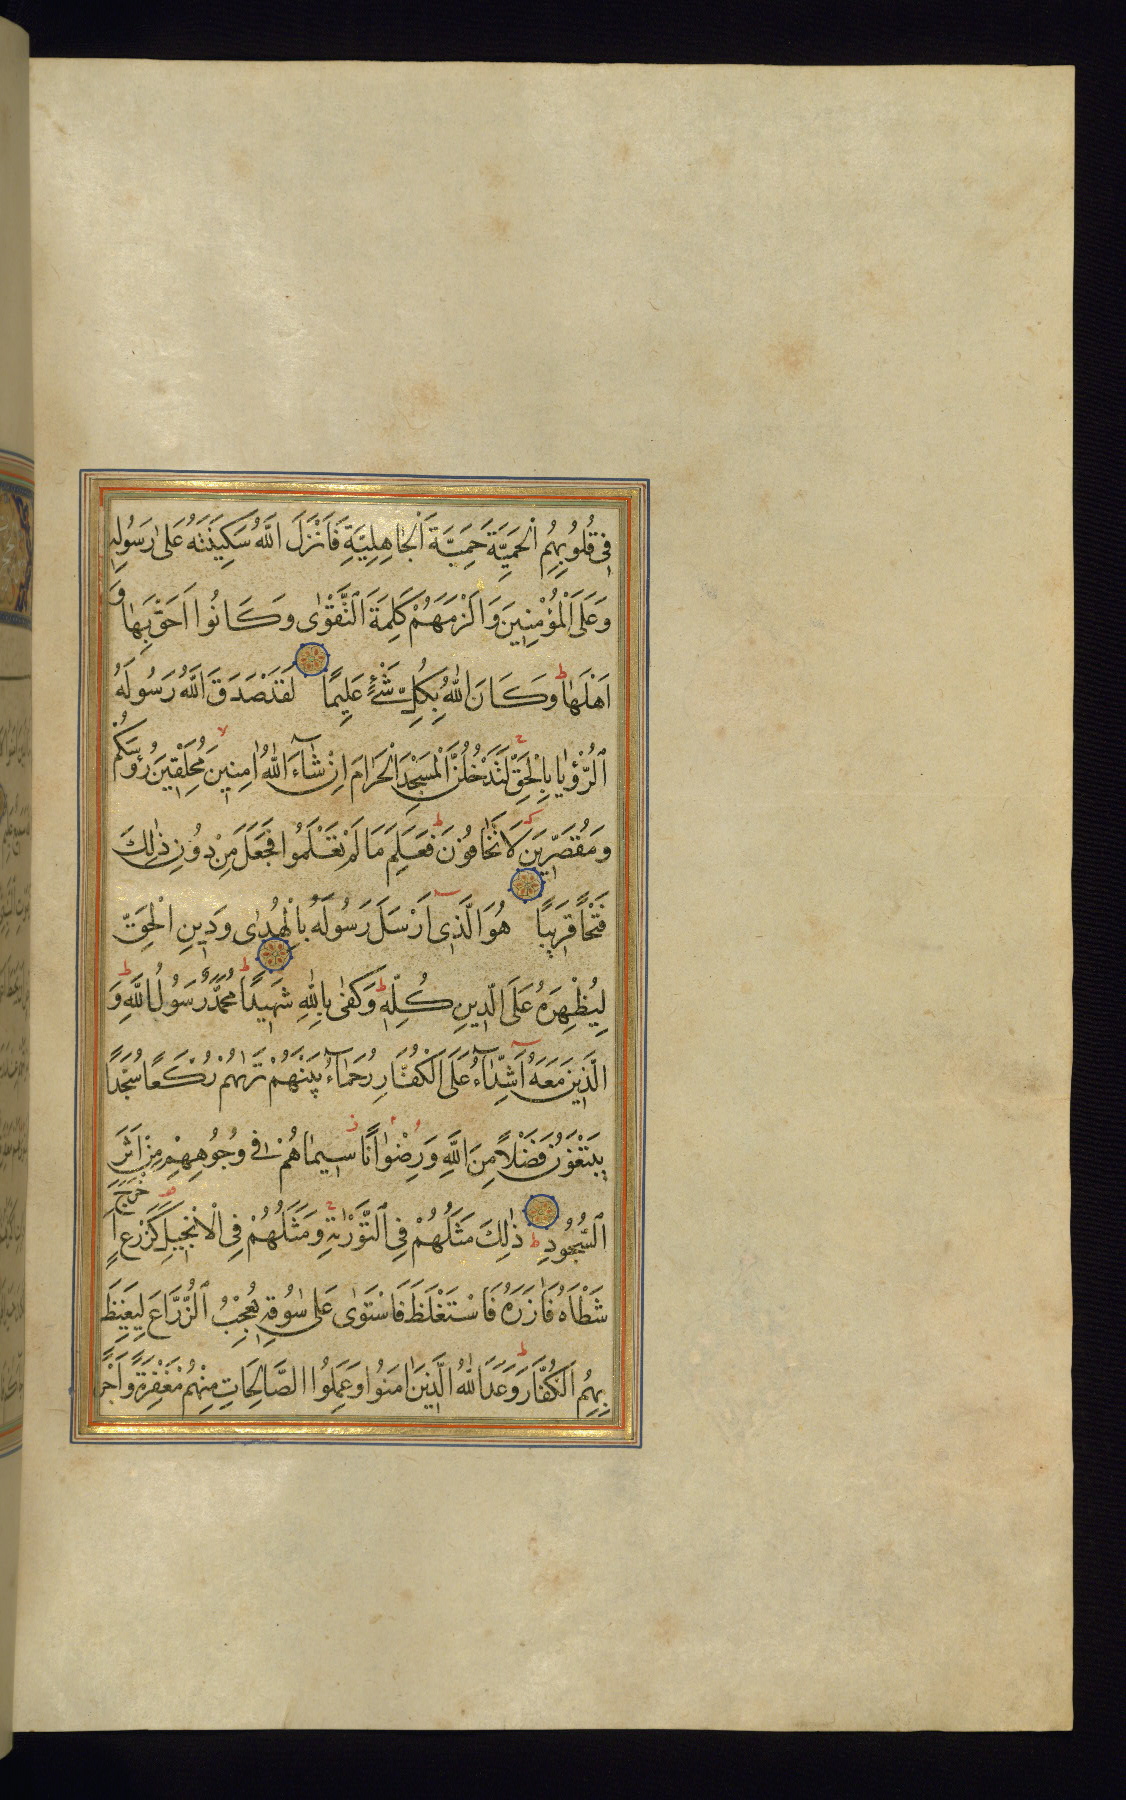 فِي قُلُوبِهِمُ الْحَمِيَّةَ حَمِيَّةَ الْجَاهِلِيَّةِ فَاَنْزَلَ اللّٰهُ سَكِينَتَهُ عَلٰى رَسُولِهِ
وَعَلَى الْمُؤْمِنِينَ وَاَلْزَمَهُمْ كَلِمَةَ التَّقْوٰى وَكَانُوا اَحَقَّ بِهَا وَ
اَهْلَهَا ط وَكَانَ اللّٰهُ بِكُلِّ شَيْءٍ عَلِيمًا لَقَدْ صَدَقَ اللّٰهُ رَسُولَهُ
الرُّؤْيَا بِالْحَقِّ ج لَتَدْخُلُنَّ الْمَسْجِدَ الْحَرَامَ اِنْ شَآءَ اللّٰهُ اٰمِنِينَ لا مُحَلِّقِينَ رُؤُسَكُمْ
وَمُقَصِّرِينَ لَا تَخَافُونَ ط فَعَلِمَ مَا لَمْ تَعْلَمُوا فَجَعَلَ مِنْ دُونِ ذٰلِكَ
فَتْحًا قَرِيبًا هُوَ الَّذِى اَرْسَلَ رَسُولَهُ بِالْهُدٰى وَدِينِ الْحَقِّ
لِيُظْهِرَهُ عَلَى الدِّينِ كُلِّهِ ط وَكَفٰى بِاللّٰهِ شَهِيدًا ط مُحَمَّدٌ رَسُولُ اللّٰهِ ط وَ
الَّذِينَ مَعَهُ اَشِدَّآءُ عَلَى الْكُفَّارِ رُحَمَآءُ بَيْنَهُمْ تَرٰيهُمْ رُكَّعًا سُجَّدًا
يَبْتَغُونَ فَضْلًا مِنَ اللّٰهِ وَرِضْوَانًا ز سِيمَاهُمْ فِى وُجُوهِهِمْ مِنْ اَثَرِ
السُّجُودِ ط ذٰلِكَ مَثَلُهُمْ فِى التَّوْرٰيةِ ج وَمَثَلُهُمْ فِى الْاِنْجِيلِ كَزَرْعٍ اَخْرَجَ
شَطْاَهُ فَاٰزَرَهُ فَاسْتَغْلَظَ فَاسْتَوٰى عَلٰى سُوقِهِ يُعْجِبُ الزُّرَّاعَ لِيَغِيظَ
بِهِمُ الْكُفَّارَ ط وَعَدَ اللّٰهُ الَّذِينَ اٰمَنُوا وَعَمِلُوا الصَّالِحَاتِ مِنْهُمْ مَغْفِرَةً وَاَجْرًا